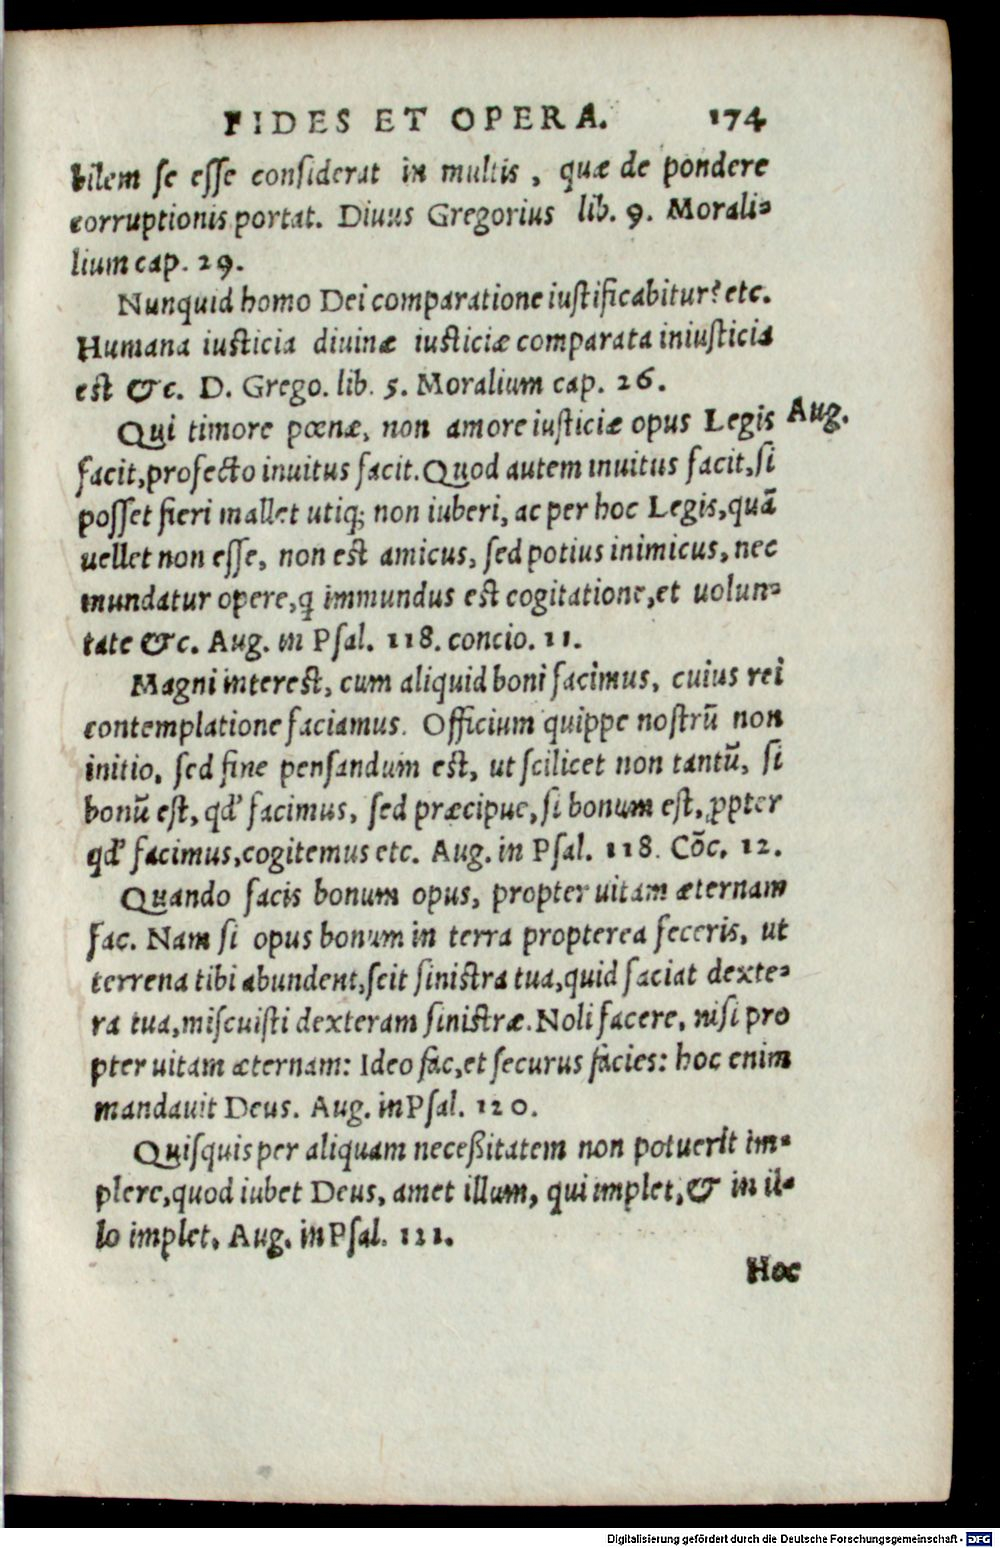 FIDES ET OPERA. 174
bilem se esse considerat in multis, quæ de pondere
corruptionis portat. Diuus Gregorius lib. 9. Morali-
lium cap. 29.
Nunquid homo Dei comparatione iustificabitur? etc.
Humana iusticia diuinæ iusticiæ comparata iniusticia
est &c. D. Grego. lib. 5. Moralium cap. 26.
Qui timore pœnæ, non amore iusticiæ opus Legis Aug.
facit, profecto inuitus facit. Quod autem inuitus facit, si
posset fieri mallet utiq; non iuberi, ac per hoc Legis, quā
uellet non esse, non est amicus, sed potius inimicus, nec
mundatur opere, q immundus est cogitatione, et uolun-
tate &c. Aug. in Psal. 118. concio. 11.
Magni interest, cum aliquid boni facimus, cuius rei
contemplatione faciamus. Officium quippe nostrū non
initio, sed fine pensandum est, ut scilicet non tantū, si
bonū est, qd' facimus, sed præcipue, si bonum est, ꝓpter
qd' facimus, cogitemus etc. Aug. in Psal. 118. Cōc. 12.
Quando facis bonum opus, propter uitam æternam
fac. Nam si opus bonum in terra propterea feceris, ut
terrena tibi abundent, scit sinistra tua, quid faciat dexte-
ra tua, miscuisti dexteram sinistræ. Noli facere, nisi pro
pter uitam æternam: Ideo fac, et securus facies: hoc enim
mandauit Deus. Aug. in Psal. 120.
Quisquis per aliquam neceßitatem non potuerit im-
plere, quod iubet Deus, amet illum, qui implet, & in il-
lo implet. Aug. in Psal. 121.
Hoc
Digitalisierung gefördert durch die Deutsche Forschungsgemeinschaft - DFG